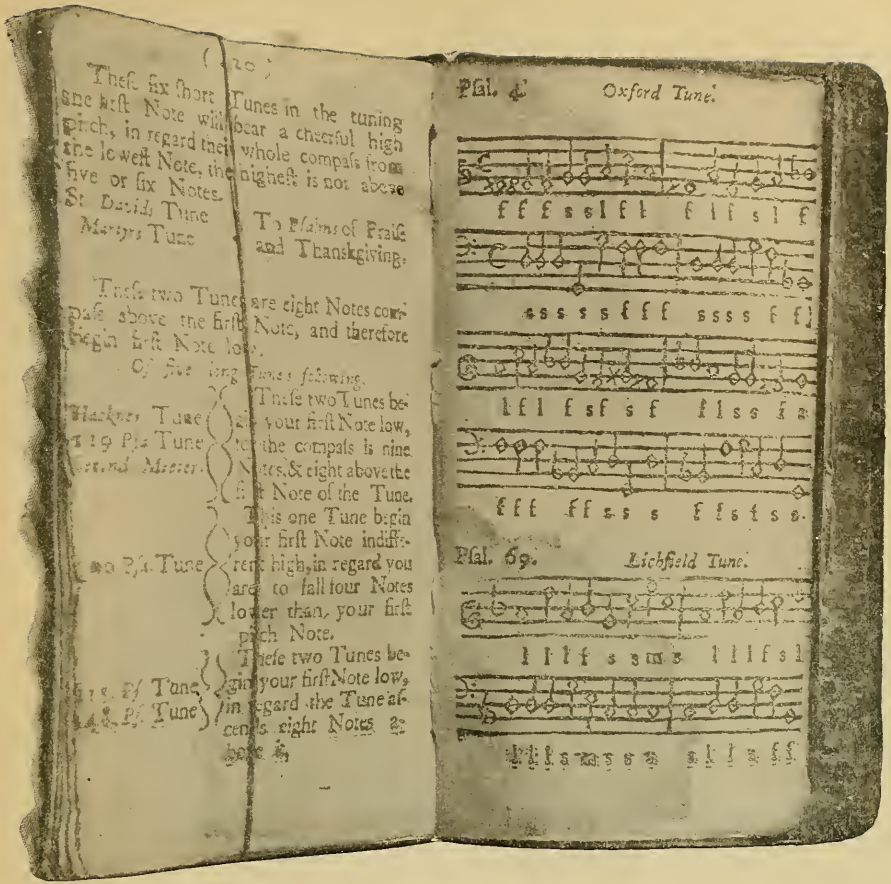 ( 420 )
These six short Tunes in the tuning
one first Note will bear a cheerful high
pitch, in regard the whole compass from
the lowest Note, the highest is not above
five or six Notes.
St. Davids Tune
Martyrs Tune
To Psalms of Praise
and Thanksgiving.
These two Tunes are eight Notes com-
pass above the first Note, and therefore
begin first Note low.
Of five long Tunes following.
Hackney Tune
119 Psa. Tune
second Meeter.
These two Tunes be-
your first Note low,
the compass is nine
Notes, & eight above the
first Note of the Tune.
Psa. Tune
This one Tune begin
your first Note indiffe-
rent high, in regard you
are to fall four Notes
lower than, your first
pitch Note.
Ps. Tune
148. Ps. Tune
These two Tunes be-
gin your first Note low,
in regard the Tune as-
cends eight Notes a-
bove it.
Psal. 4
Oxford Tune.
f f f s s l f l f l f s l f
s s s s s f f f s s s s f f l
l f l f s f s f f l s s
f f f f f s s s f f s f s s
Psal. 69.
Lichfield Tune.
l l l f s s m s l l l f s l